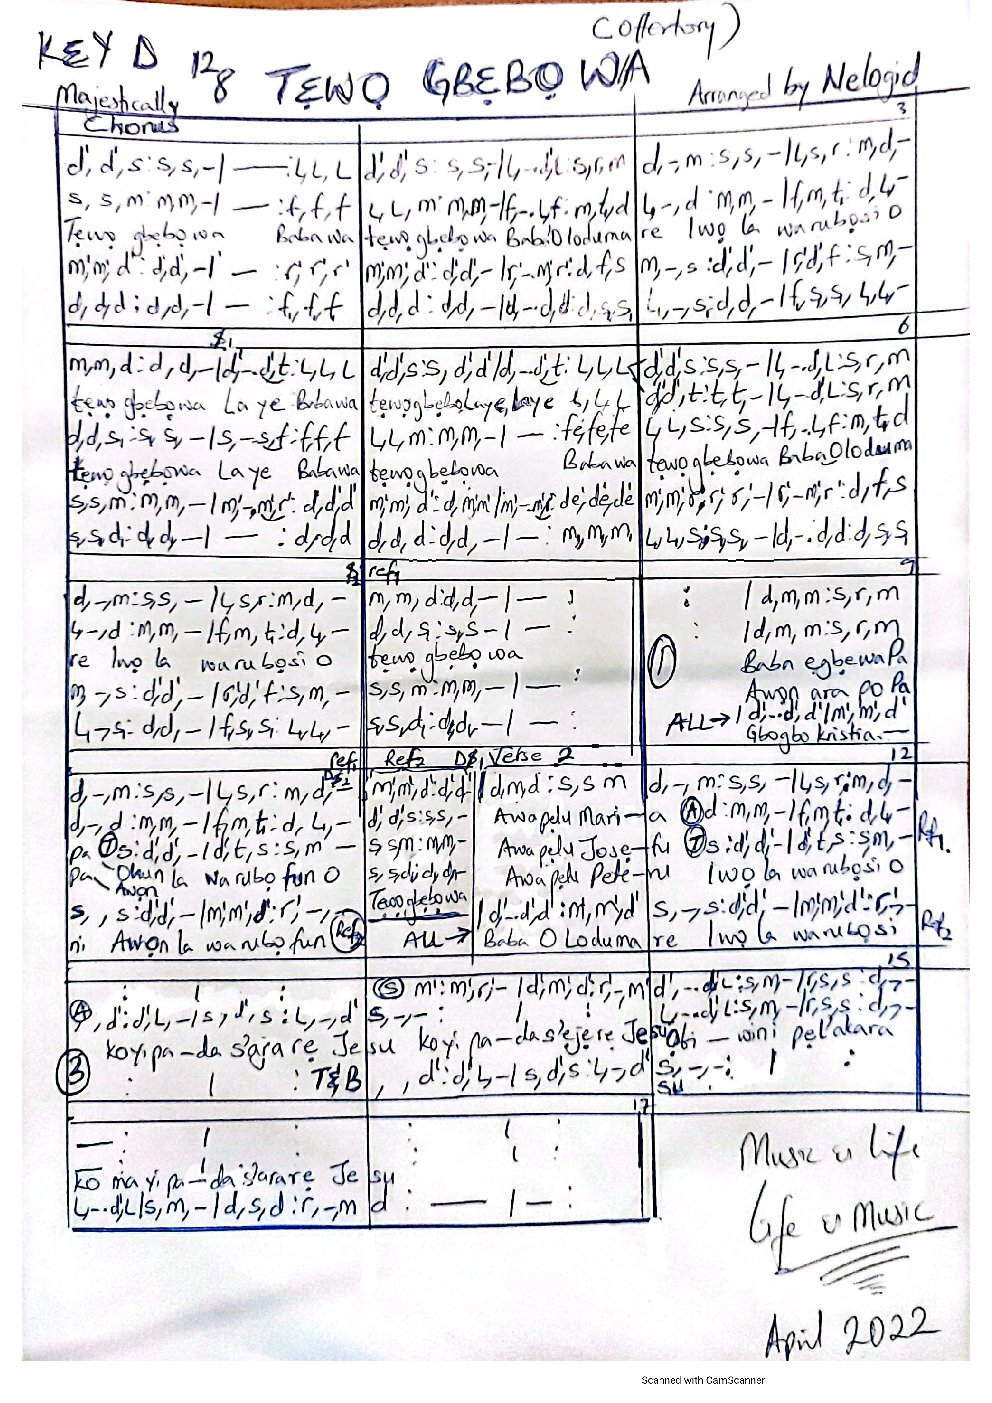 (Offertory)
KEY D 12/8 TẸWỌ GBẸBỌ WA
Majestically Arranged by Nelogid
Chorus 3
d', d', s : s, s, - | — : l, l, l d', d', s : s, s, - | l, -. d', l : s, r, m d, -, m : s, s, - | l, s, r : m, d, -
s, s, m : m, m, - | — : f, f, f l, l, m : m, m, - | f, -. l, f : m, t, d l, -, d : m, m, - | f, m, t, : d, l, -
Tẹwọ gbẹbọwa Babawa tẹwọgbẹbọwa Baba Oloduma re Iwọ la warubọsi O
m', m', d' : d', d', - | — : r', r', r' m', m', d' : d', d', - | r', -. m', r' : d', f, s m, -, s : d', d', - | r', d', f : s, m, -
d, d, d : d, d, - | — : f, f, f d, d, d : d, d, - | d, -. d, d : d, s, s, l, -, s, : d, d, - | f, s, s, : l, l, -
$1 6
m, m, d : d, d, - | d', -. d', t : l, l, l d', d', s : s, d', d' | d', -. d', t : l, l, l d', d', s : s, s, - | l, -. d', l : s, r, m
tẹwọgbẹbọwa Laye Babawa tẹwọgbẹbọLaye, Laye l, l, l d', d', t : t, t, - | l, -. d', l : s, r, m
d, d, s, : s, s, - | s, -. s, f : f, f, f l, l, m : m, m, - | — : fe, fe, fe l, l, s : s, s, - | f, -. l, f : m, t, d
tẹwọgbẹbọwa Laye Babawa tẹwọgbẹbọwa Babawa tẹwọgbẹbọwa Baba Oloduma
s, s, m : m, m, - | m', -. m', r' : d', d', d' m', m', d' : d', m', m' | m', -. m', r' : de', de', de' m', m', r' : r', r', - | r', -. m', r' : d', f, s
s, s, d : d, d, - | — : d, d, d d, d, d : d, d, - | — : m, m, m, l, l, s, : s, s, - | d, -. d, d : d, s, s
$2 ref1 9
d, -, m : s, s, - | l, s, r : m, d, - m, m, d : d, d, - | — : : | d, m, m : s, r, m
l, -, d : m, m, - | f, m, t, : d, l, - d, d, s, : s, s, - | — : : | d, m, m : s, r, m
re Iwọ la warubọsi O tẹwọgbẹbọwa 1 Baba ẹgbẹwaPa
m, -, s : d', d', - | r', d', f : s, m, - s, s, m : m, m, - | — : Awọn ara po Pa
l, -, s, : d, d, - | f, s, s, : l, l, - s, s, d : d, d, - | — : ALL → | d', -. d', d' | m', m', d'
Gbogbo kristia —
ref1 Ref2 D$1 Verse 2 12
D$2
d, -, m : s, s, - | l, s, r : m, d, - m', m', d' : d', d' - | d, m, d : s, s m d, -, m : s, s, - | l, s, r : m, d, -
d, -, d : m, m, - | f, m, t, : d, l, - d', d', s : s, s, - Awapẹlu Mari-a (A) d : m, m, - | f, m, t, : d, l, - Ref1.
pa (T) s : d', d', - | d', t, s : s, m - s, s m : m, m, - Awapẹlu Josẹ-fu (T) s : d', d', - | d', t, s : s, m, -
pa Ohun la warubọ fun O s, s, d : d, d, - Awapẹlu Pete-ru Iwọ la warubọsi O
Awọn Tẹwọgbẹbọwa
s, , s : d', d', - | m', m', d' : r', -, - | d', -. d', d' : m', m', d' s, -, s : d', d' - | m', m', d' : r', - Ref2
ni Awọn la warubọ fun Ref2 ALL → Baba Oloduma re Iwọ la warubọsi
15
: | : (S) m' : m', r', - | d', m', d' : r', -, m' d', -. d', l : s, m, - | r, s, s : d, -, -
(A) , d' : d', l, - | s, d', s : l, -, d' s, -, - : | : l, -. d', l : s, m, - | r, s, s : d, -, -
koyipa-da s'ara rẹ Jesu koyipa-da s'ẹjẹrẹ Jesu Obi - wini pẹl'akara
3 : | : T&B , , d' : d', l, - | s, d', s : l, -, d' s, -, - : | :
su
17
— : | : : | :
ko ma yi pa-da s'ara rẹ Jesu
l, -. d', l | s, m, - | d, s, d : r, -, m d : — | — :
Music is life
Life is Music
April 2022
Scanned with CamScanner